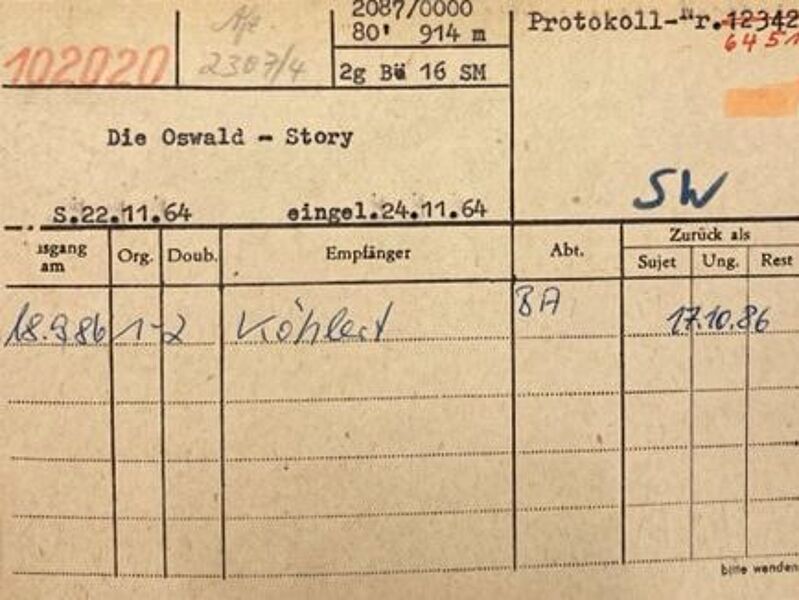 2087/0000
80' 914 m
2g Bü 16 SM
Protokoll-Nr. 12342
6451
102020
2307/4
Die Oswald - Story
SW
S.22.11.64 eingel.24.11.64
usgang am Org. Doub. Empfänger Abt. Zurück als
Sujet Ung. Rest
18.9.86 1-2 Köhlert BA 17.10.86
bitte wenden